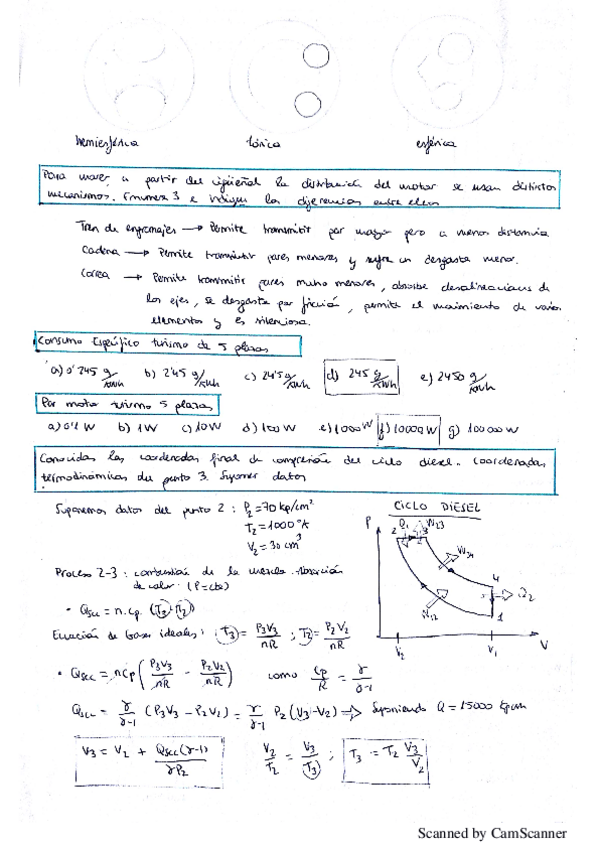 hemiesférica tórica esférica
Para mover a partir del cigüeñal la distribución del motor se usan distintos
mecanismos. Enumera 3 e indique las diferencias entre ellos
Tren de engranajes → Permite transmitir par mayor pero a menor distancia
Cadena → Permite transmitir pares menores y sufre un desgaste menor.
Correa → Permite transmitir pares mucho menores, absorbe desalineaciones de
los ejes, se desgasta por fricción, permite el movimiento de varios
elementos y es silenciosa.
Consumo Específico turismo de 5 plazas
a) 0'245 g/kWh b) 2'45 g/kWh c) 24'5 g/kWh d) 245 g/kWh e) 2450 g/kWh
Par motor turismo 5 plazas
a) 0'1 W b) 1W c) 10W d) 100 W e) 1000 W f) 10000 W g) 100000 W
Conocidas las coordenadas final de compresión del ciclo diesel. Coordenadas
termodinámicas del punto 3. Suponer datos
Suponemos datos del punto 2: P2 = 70 kp/cm²
T2 = 1000 °K
V2 = 30 cm³
CICLO DIESEL
P Q1 W23
2 3
W34
4
Q2
W12 1
V2 V1 V
Proceso 2-3: combustión de la mezcla. Absorción
de calor. (P=cte)
• Qscc = n.cp. (T3-T2)
Ecuación de gases ideales: T3 = P3V3/nR ; T2 = P2V2/nR
• Qscc = ncp (P3V3/nR - P2V2/nR) como cp/R = γ/γ-1
Qscc = γ/γ-1 (P3V3 - P2V2) = γ/γ-1 P2(V3-V2) ⇒ Suponiendo Q = 15000 kpcm
V3 = V2 + Qscc(γ-1)/γP2 V2/T2 = V3/T3 ; T3 = T2 V3/V2
Scanned by CamScanner